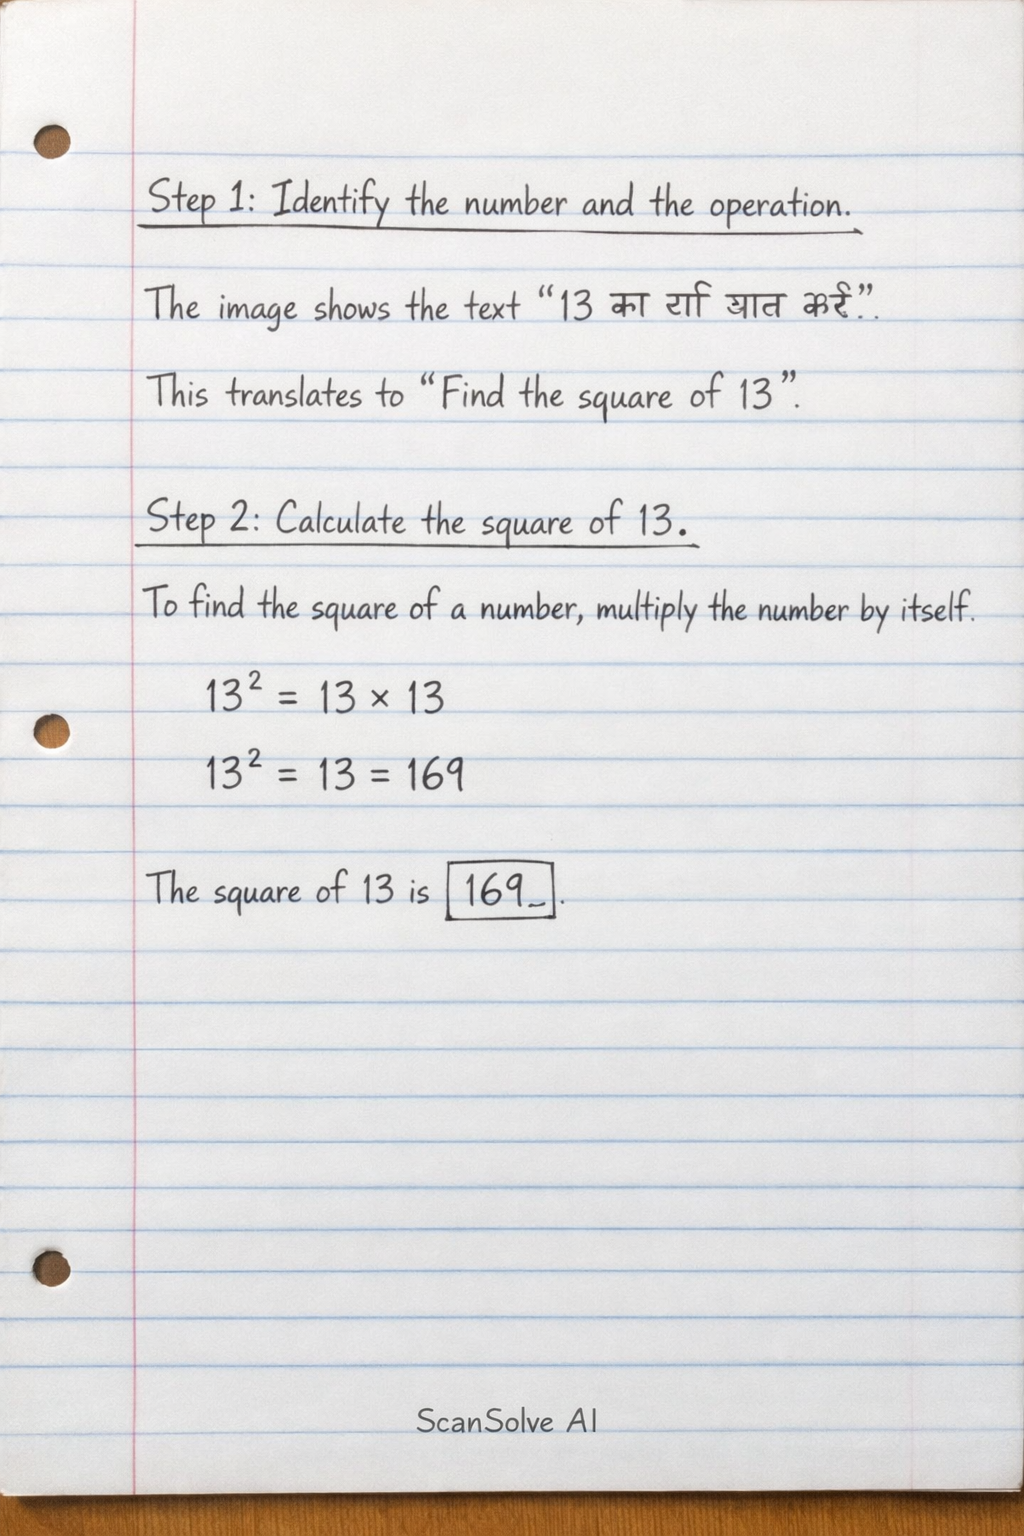 Step 1: Identify the number and the operation.
The image shows the text “13 का”.
This translates to “Find the square of 13”.
Step 2: Calculate the square of 13.
To find the square of a number, multiply the number by itself.
13² = 13 × 13
13² = 13 = 169
The square of 13 is 169_.
ScanSolve AI